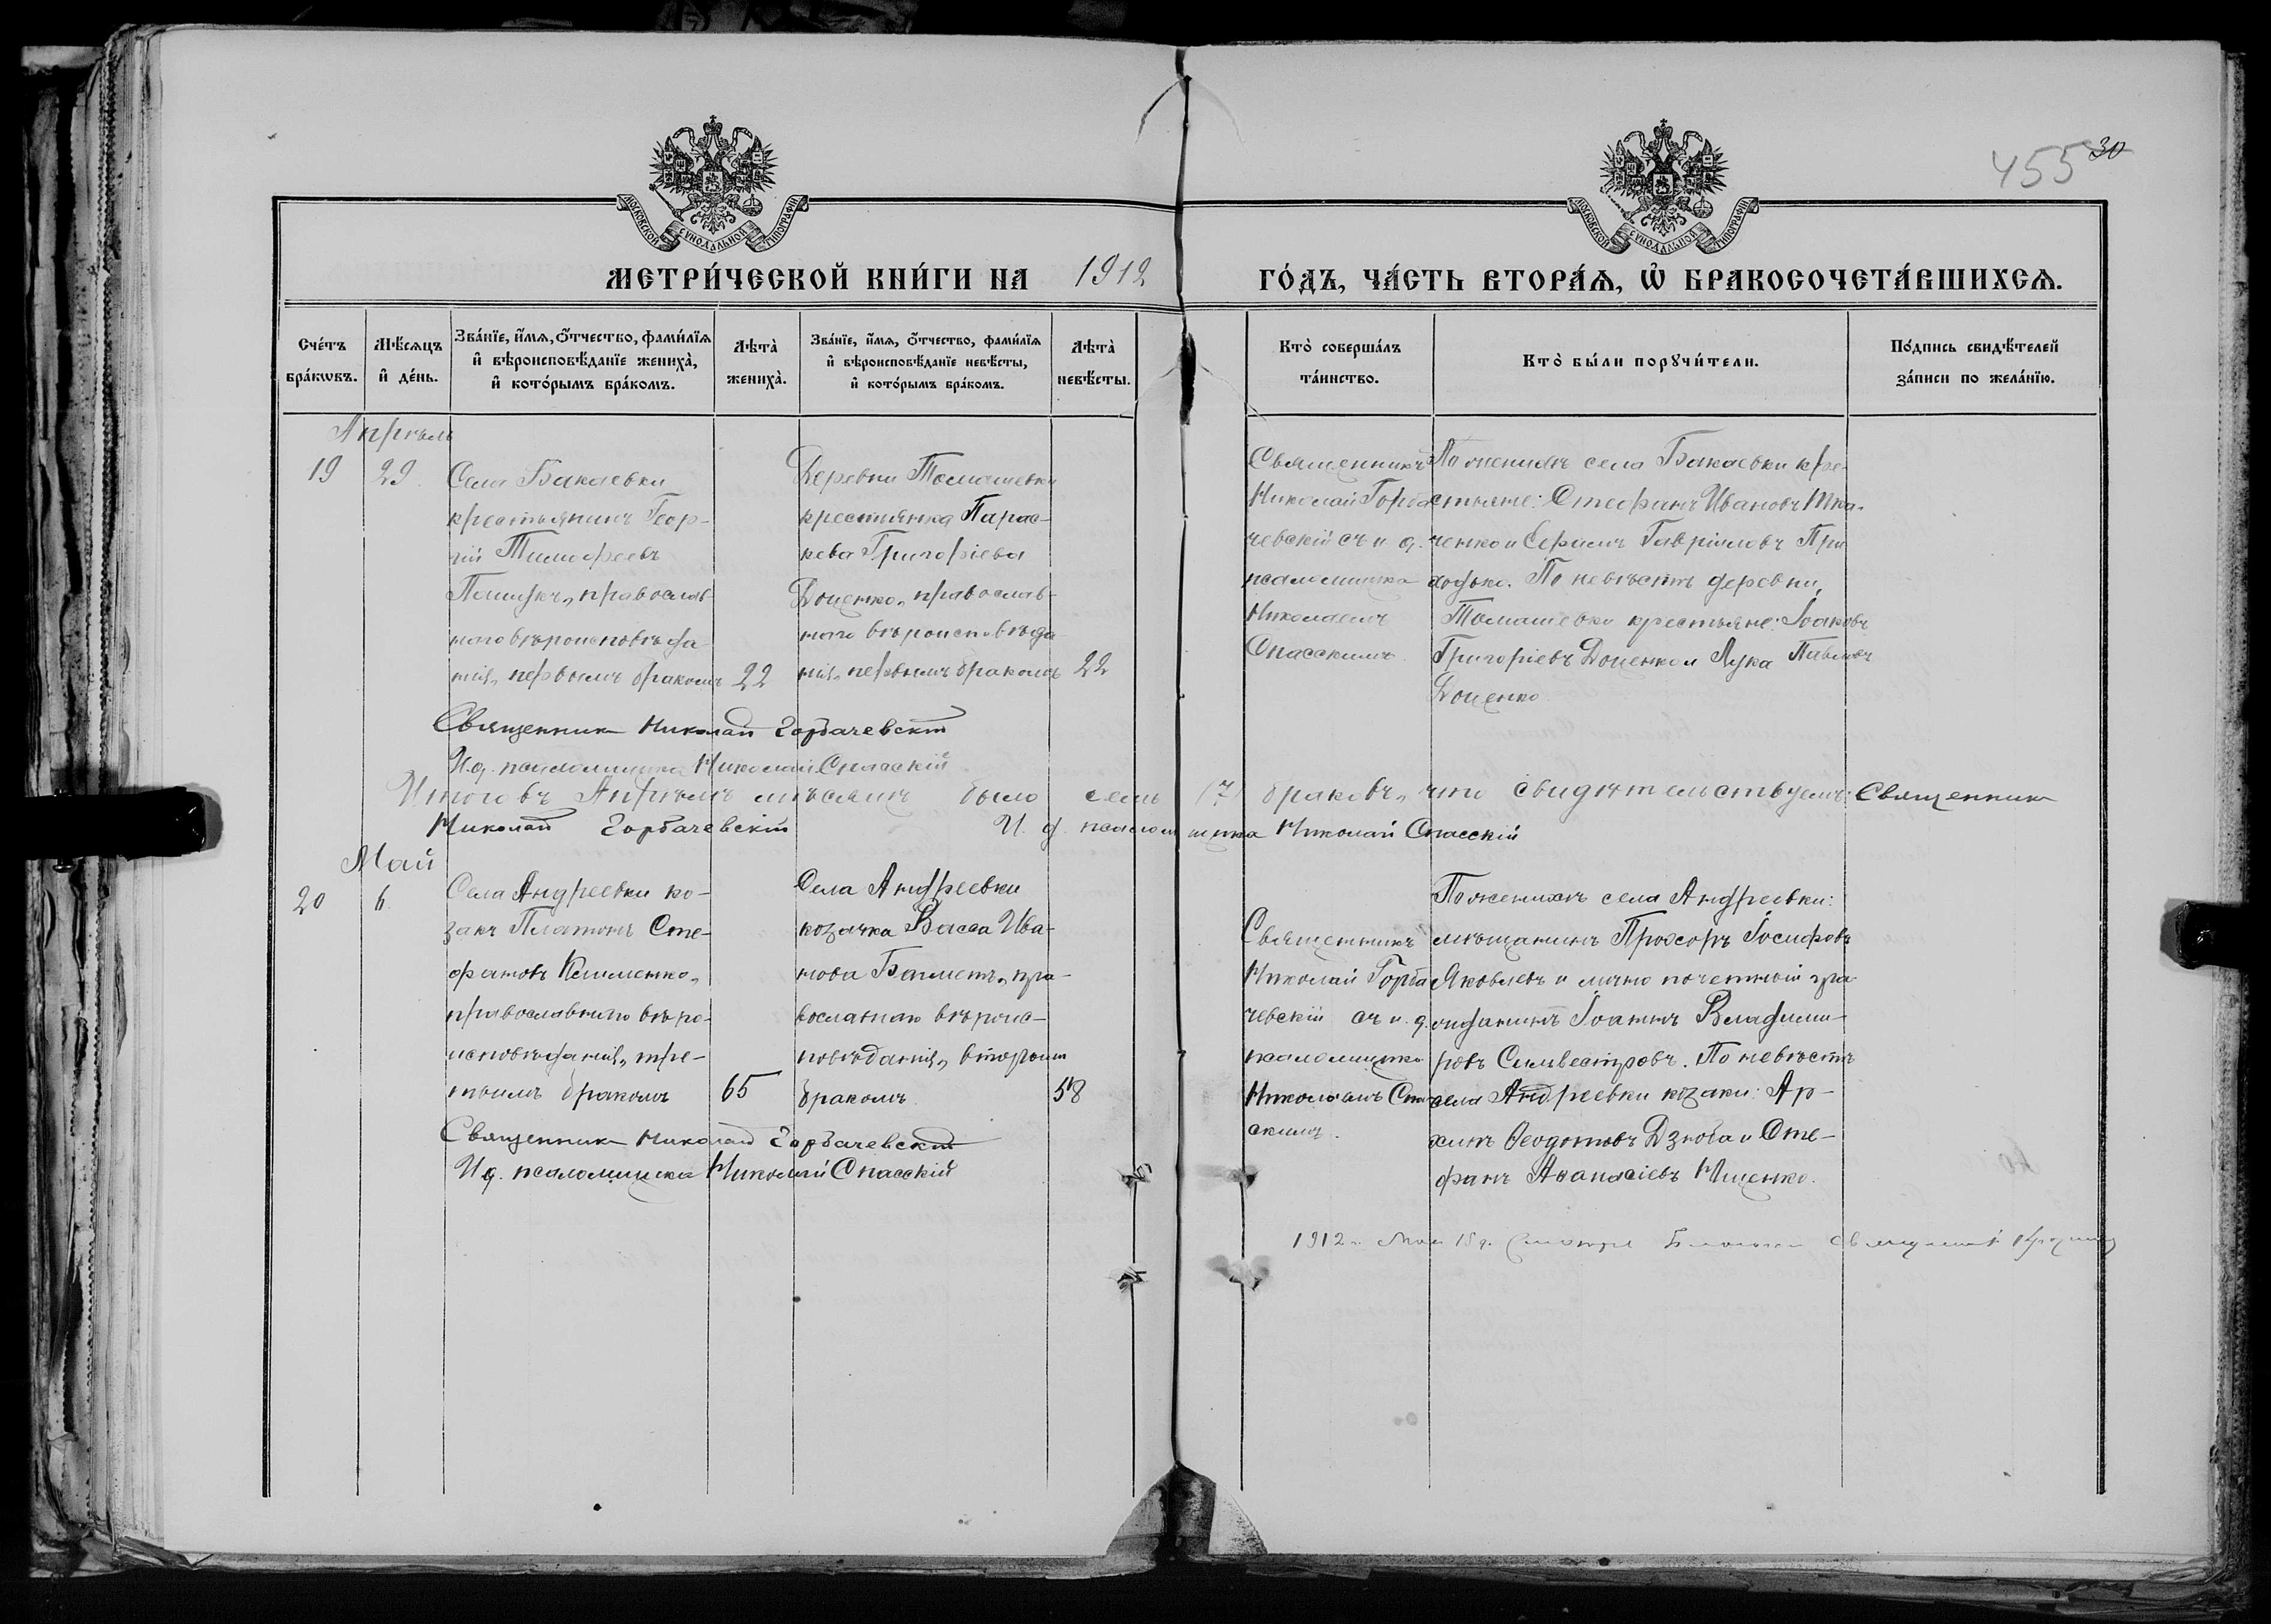 455 30
МОСКОВСКОЙ СѴНОДАЛЬНОЙ ТИПОГРАФІИ
МОСКОВСКОЙ СѴНОДАЛЬНОЙ ТИПОГРАФІИ
МЕТРИ́ЧЕСКОЙ КНИ́ГИ НА 1912 ГО́ДЪ, ЧА́СТЬ ВТОРА́Ѧ, Ѽ БРАКОСОЧЕТА́ВШИХСѦ.
Сче́тъ
бра́кѡвъ.
Мѣ́сяцъ
и҆ де́нь.
Зва́нїе, и҆́мѧ, ѻ҆́тчество, фами́лїѧ
и҆ вѣроисповѣ́данїе жениха̀,
и҆ кото́рымъ бра́комъ.
Лѣта̀
жениха̀.
Зва́нїе, и҆́мѧ, ѻ҆́тчество, фами́лїѧ
и҆ вѣроисповѣ́данїе невѣ́сты,
и҆ кото́рымъ бра́комъ.
Лѣта̀
невѣ́сты.
Кто̀ соверша́лъ
та́инство.
Кто̀ бы́ли порꙋчи́тели.
По́дпись свидѣ́телей
за́писи по жела́нїю.
Апрѣль
19
29
Села Бакаевки
крестьянинъ Геор-
гій Тимофеевъ
православ-
наго вѣроисповѣда-
нія, первымъ бракомъ
22
Деревни Томашевки
крестьянка Парас-
кева Григоріева
Доценко, православ-
наго вѣроисповѣда-
нія, первымъ бракомъ
22
Священникъ
Николай Горба-
чевскій съ и. д.
псаломщика
Николаемъ
Спасскимъ.
По женихѣ села Бакаевки кре-
стьяне: Стефанъ Ивановъ Тка-
ченко и Гавріиловъ При
ходько. По невѣстѣ деревни
Томашевки крестьяне: Іоаковъ
Григоріевъ Доценко и Лука Павловъ
Доценко.
Священник Николай Горбачевскій
И. д. псаломщика Николай Спасскій
Итого въ Апрѣлѣ мѣсяцѣ было семь (7) браковъ, что свидѣтельствуемъ: Священник
Николай Горбачевскій И. д. псаломщика Николай Спасскій
Май
20
6.
Села Андреевки ко-
закъ Платонъ Сте-
фановъ Клименко,
православнаго вѣро-
исповѣданія, тре-
тьимъ бракомъ
65
Села Андреевки
козачка Васса Ива-
нова пра-
вославнаго вѣроис-
повѣданія, вторымъ
бракомъ.
58
Священникъ
Николай Горба
чевскій съ и. д.
псаломщика
Николаемъ Спас
скимъ.
По женихѣ села Андреевки:
мѣщанинъ Прохоръ Іосифовъ
Яковлевъ и лично почетный гра
жданинъ Іоаннъ Владими-
ровъ Сильвестровъ. По невѣстѣ
села Андреевки козаки: Ар-
хипъ Ѳеодотовъ Дзюба и Сте-
фанъ Аѳанасіевъ Ищенко.
Священник Николай Горбачевскій
И. д. псаломщика Николай Спасскій
1912 г. Мая 15 д.